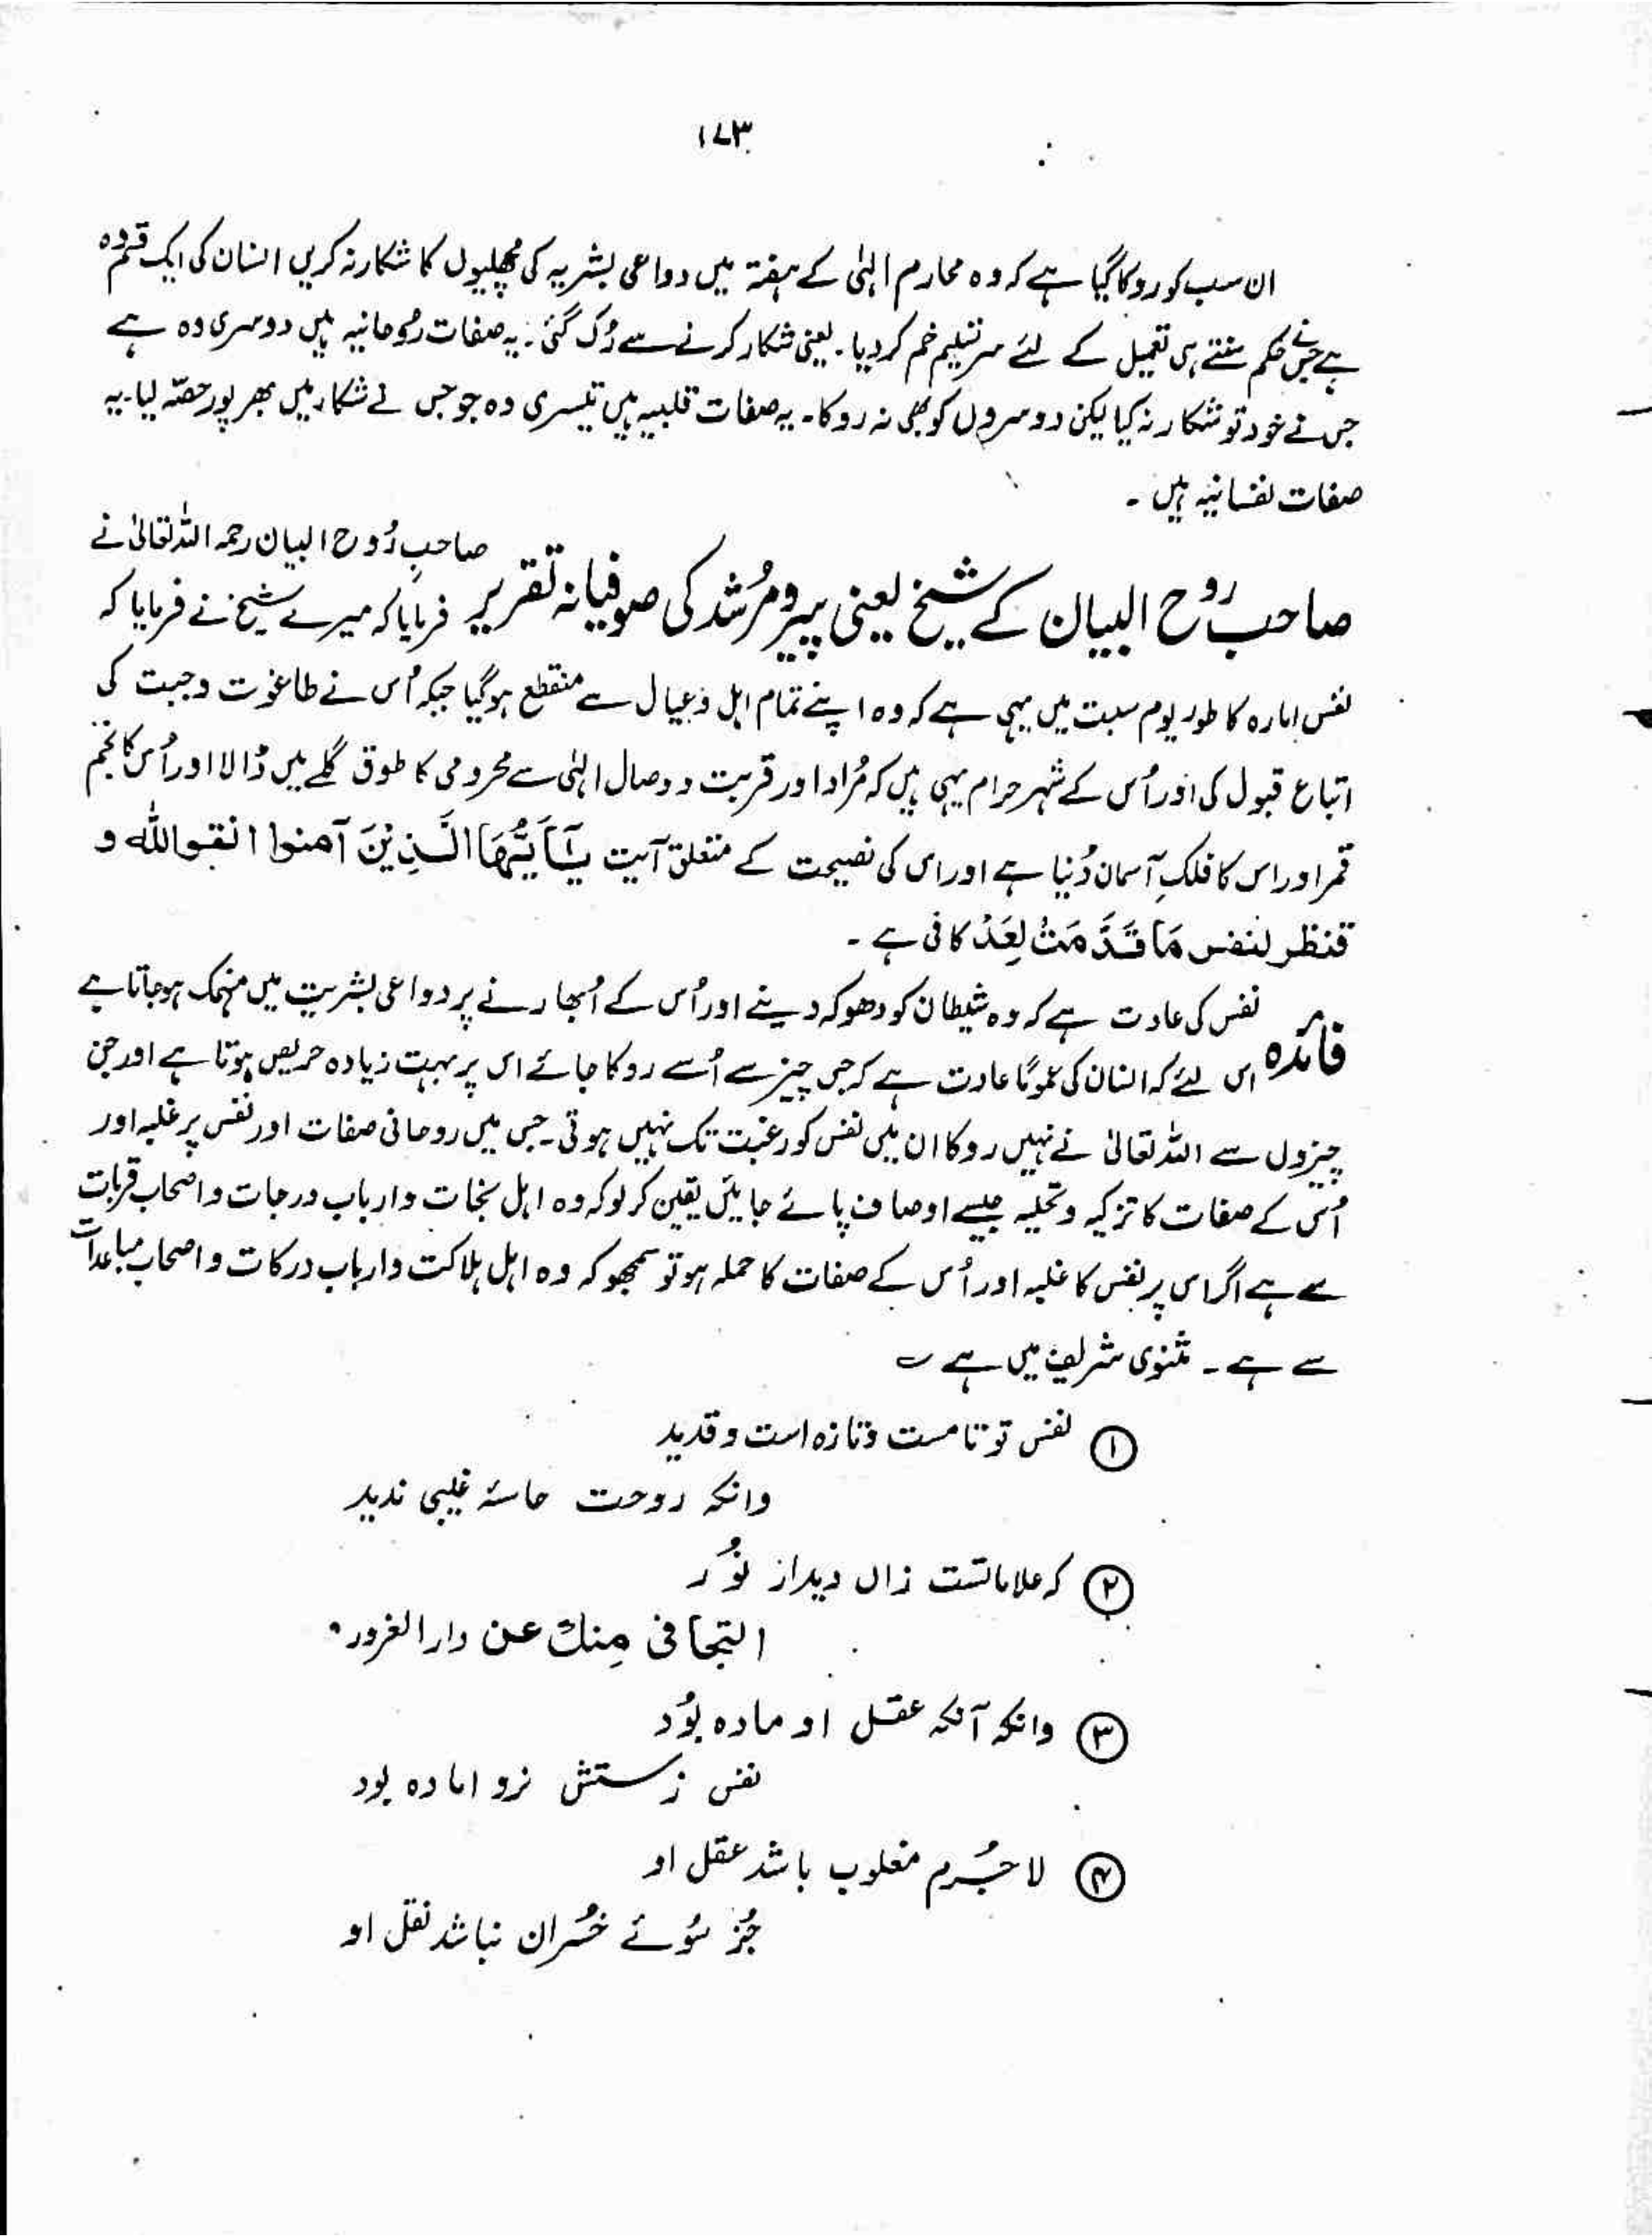 ۱۷۳
ان سب کو روکا گیا ہے کہ وہ محارم الہٰی کے ہفتہ میں دواعی بشریہ کی مچھلیوں کا شکار نہ کریں انسان کی ایک قسم وہ
ہے جس نے حکم سنتے ہی تعمیل کے لئے سر تسلیم خم کر دیا ۔ یعنی شکار کرنے سے رُک گئی ۔ یہ صفات رُوحانیہ ہیں دوسری وہ ہے
جس نے خود تو شکار نہ کیا لیکن دوسروں کو بھی نہ روکا ۔ یہ صفات قلبیہ ہیں تیسری وہ جو جس نے شکار میں بھرپور حصّہ لیا ۔ یہ
صفات نفسانیہ ہیں ۔
صاحب روح البیان کے شیخ یعنی پیر و مُرشد کی صوفیانہ تقریر صاحبِ رُوح البیان رحمہ اللہ تعالیٰ نے
فرمایا کہ میرے شیخ نے فرمایا کہ
نفس امارہ کا طور یوم سبت میں یہی ہے کہ وہ اپنے تمام اہل و عیال سے منقطع ہو گیا جبکہ اُس نے طاغوت و جبت کی
اتباع قبول کی اور اُس کے شہر حرام یہی ہیں کہ مُراد اور قربت و وصال الہٰی سے محرومی کا طوق گلے میں ڈالا اور اُس کا نجم
قمر اور اس کا فلکِ آسمان دُنیا ہے اور اس کی نصیحت کے متعلق آیت یٰٓاَیُّھَا الَّذِیْنَ آمنوا اتقوا اللّٰہ و
قنظر لنفس مَا قَدَّ مَتْ لِغَدْ کافی ہے ۔
فائدہ نفس کی عادت ہے کہ وہ شیطان کو دھوکہ دینے اور اُس کے اُبھارنے پر دواعی بشریت میں منہمک ہو جاتا ہے
اس لئے کہ انسان کی عموماً عادت ہے کہ جس چیز سے اُسے روکا جائے اس پر بہت زیادہ حریص ہوتا ہے اور جن
چیزوں سے اللہ تعالیٰ نے نہیں روکا ان میں نفس کو رغبت تک نہیں ہوتی ۔ جس میں روحانی صفات اور نفس پر غلبہ اور
اُس کے صفات کا تزکیہ و تحلیہ جیسے اوصاف پائے جائیں یقین کر لو کہ وہ اہل نجات و ارباب درجات و اصحاب قربات
سے ہے اگر اس پر نفس کا غلبہ اور اُس کے صفات کا حملہ ہو تو سمجھو کہ وہ اہل ہلاکت و ارباب درکات و اصحاب مباعدات
سے ہے ۔ مثنوی شریف میں ہے ؎
① نفس تو تا مست و تازہ است و قدید
وانکہ روحت حاسۂ غیبی ندید
② کہ علاماتست زاں دیدار نُور
التجافی مِنك عن دار الغرور
③ وانکہ آنکہ عقل او مادہ بوُد
نفس زستش نرو امادہ بود
④ لا جُرم مغلوب باشد عقل او
جُز سُوئے خُسران نباشد نقل او